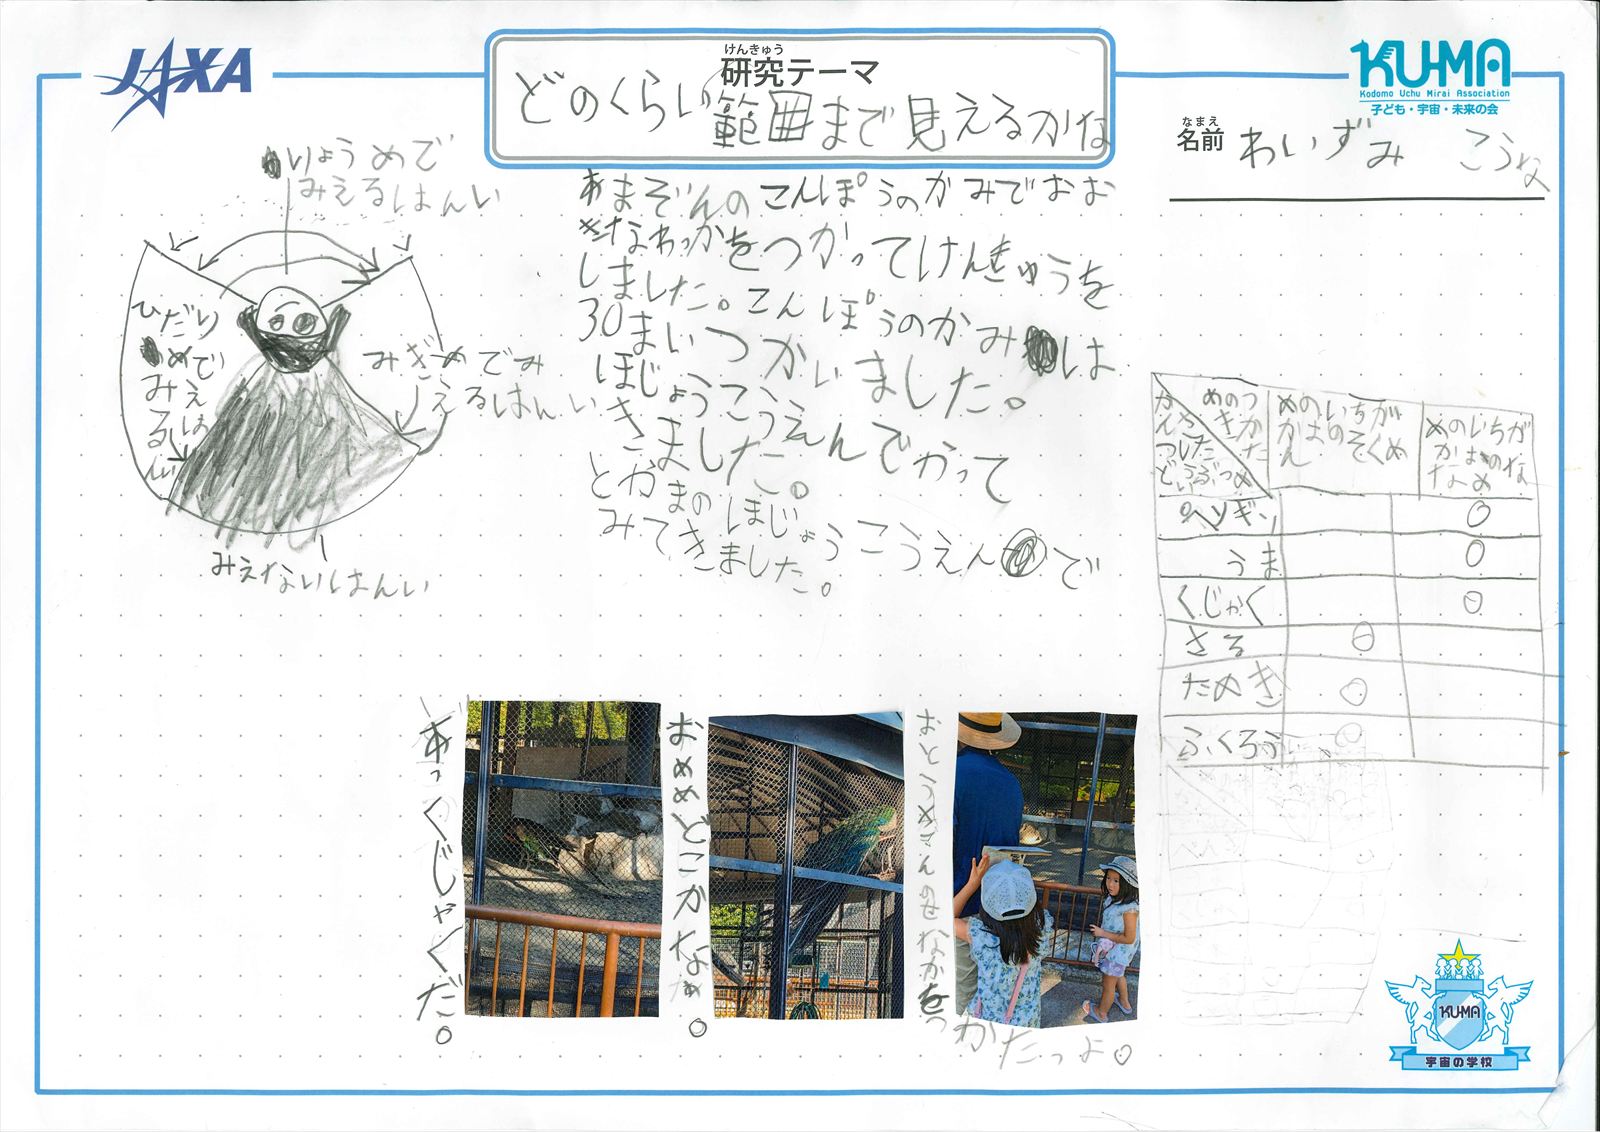 JAXA
けんきゅう
研究テーマ
どのくらい範囲まで見えるかな
KUMA
Kodomo Uchu Mirai Association
子ども・宇宙・未来の会
なまえ
名前 わいずみ こうな
りょうめで
みえるはんい
ひだり
めで
みえ
るは
んい
みぎめでみ
えるはんい
みえないはんい
あまぞんのこんぽうのかみでおお
きなわっかをつかってけんきゅうを
しました。こんぽうのかみは
30まいつかいました。
ほじょうこうえんでかって
きました。
とかまのほじょうこうえんで
みてきました。
めのつ
きかた
かんさ
つした
どうぶつめい
めのいちが
かおのそくめ
ん
めのいちが
かおのな
なめ
ペンギン ○
うま ○
くじゃく ○
さる ○
たぬき ○
ふくろう ○
あっくじゃくだ。
おめめどこかなぁ。
おとうめさんのせなかをつ
かたっよ。
KUMA
宇宙の学校